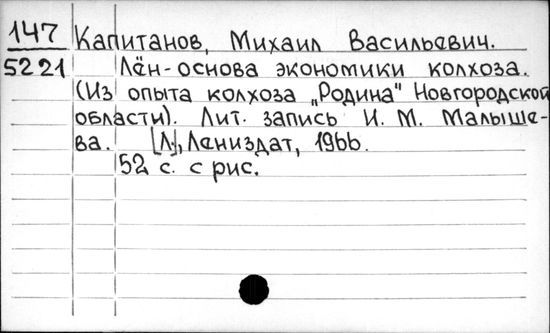 147 Капитанов, Михаил Васильевич.
5221 Лён-основа экономики колхоза.
(Из опыта колхоза „Родина" Новгородской
области). Лит. запись И. М. Малыше-
ва. [Л.], Лениздат, 1966.
52 с. с рис.